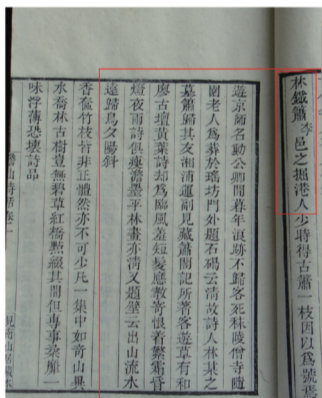 林鐵簫李邑之掘港人少時得古簫一枝因以爲號焉
遊京師名動公卿間暮年浪跡不歸客死秣陵僧寺隨
園老人爲葬於瑤坊門外題石碣云清故詩人林某之
墓簫歸其友湘浦運副見藏簫閣記所著客遊草有和
廖古壇黃葉詩却爲臨風羞短髮應教苛恨看繁霜昏
燈夜雨詩俱瘦澹墨平林畫亦淸又題壁云出山流水
遠歸鳥夕陽斜
香奩竹枝皆非正體然亦不可少凡一集中如奇山異
水喬林古樹豈無碧草紅橋點綴其間但專事染靡一
味浮薄恐壞詩品